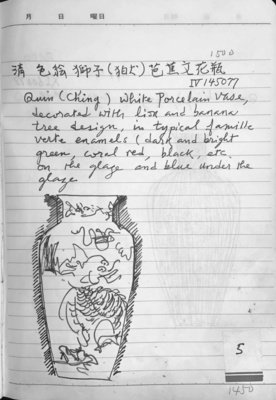 月 日 曜日
1500
清 色翁 獅子(狛犬)芭蕉文花瓶
IT 145077
Quin (Ching) White Porcelain Vase,
decorated with lion and banana
tree design, in typical famille
verte enamels (dark and bright
green, coral red, black, etc.
on the glaze and blue under the
glaze
5
1450